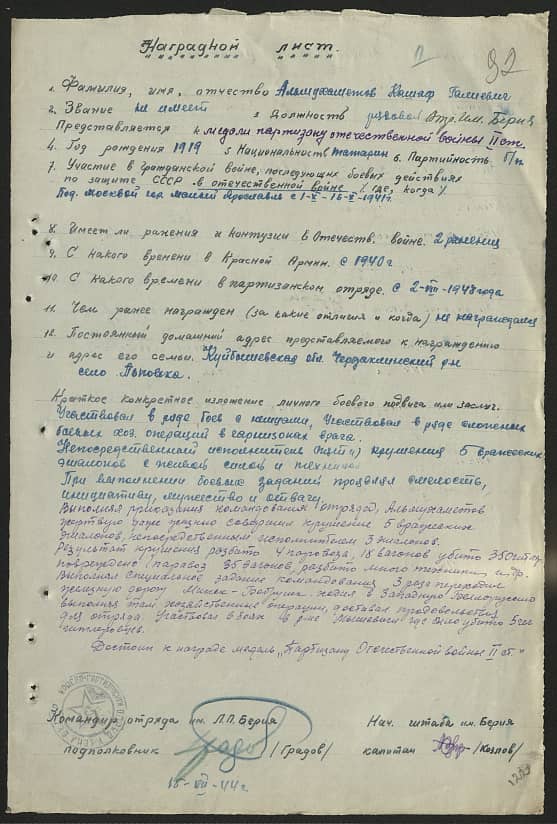 Наградной лист.
1 92
1. Фамилия, имя, отчество Альмухаметов Кашаф Галиевич
2. Звание не имеет 3 Должность рядовой Отр. им. Берия
Представляется к медали партизану отечественной войны II ст.
4. Год рождения 1919 5 Национальность татарин 6. Партийность б/п
7. Участие в гражданской войне, последующих боевых действиях
по защите СССР в отечественной войне /где, когда/
Под. Москвой гор Малый Ярославль с 1-X-15-X-1941г.
8. Имеет ли ранения и контузии в Отечеств. войне. 2 ранения
9. С какого времени в Красной Армии. с 1940 г
10. С какого времени в партизанском отряде. с 2-VIII-1943 года
11. Чем ранее награжден (за какие отличия и когда) не награждался
12. Постоянный домашний адрес представляемого к награждению
и адрес его семьи. Куйбышевская обл. Чердаклинский р-н
село
Краткое конкретное изложение личного боевого подвига или заслуг.
Участвовал в ряде боев с немцами, Участвовал в ряде сложенных
боевых хоз. операций в гарнизонах врага.
Непосредственный исполнитель крушения 5 вражеских
эшалонов с живой силой и техникой
При выполнении боевые заданий проявлял смелость,
инициативу, мужество и отвагу.
Выполняя приказания командования отряда, Альмухаметов
совершил крушение 5 вражеских
эшалонов, непосредственным исполнителем 3 эшалонов.
Результат крушения разбито 4 паровоза, 18 вагонов убито 350
повреждено 1 паровоз 35 вагонов, разбито много техники и др.
Выполняя специальное задание командования 3 раза переходил
железную дорогу Минск-Бобруйск ходил в Западную Белоруссию
выполняя там хозяйственные операции, доставал продовольствия
для отряда. Участвовал в боях в р-не где было убито 5
гитлеровцев.
Достоин к награде медаль „Партизану Отечественной войны II ст."
Командир отряда им. Л.П. Берия Нач. штаба им. Берия
подполковник /Градов/ капитан /Козлов/
15-VII-44 г.